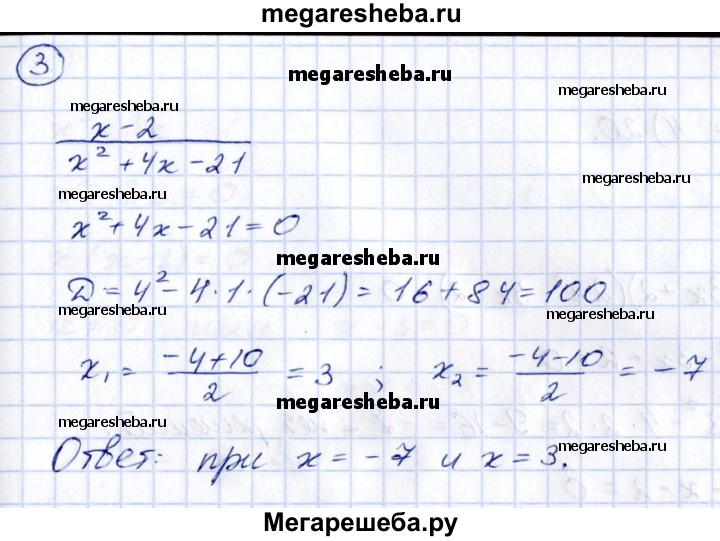 megaresheba.ru
3
megaresheba.ru
megaresheba.ru
megaresheba.ru
x - 2
x² + 4x - 21
megaresheba.ru
megaresheba.ru
x² + 4x - 21 = 0
megaresheba.ru
D = 4² - 4 · 1 · (-21) = 16 + 84 = 100
megaresheba.ru
megaresheba.ru
x₁ = (-4+10)/2 = 3 ; x₂ = (-4-10)/2 = -7
megaresheba.ru
megaresheba.ru
megaresheba.ru
Ответ: при x = -7 и x = 3.
Мегарешеба.ру